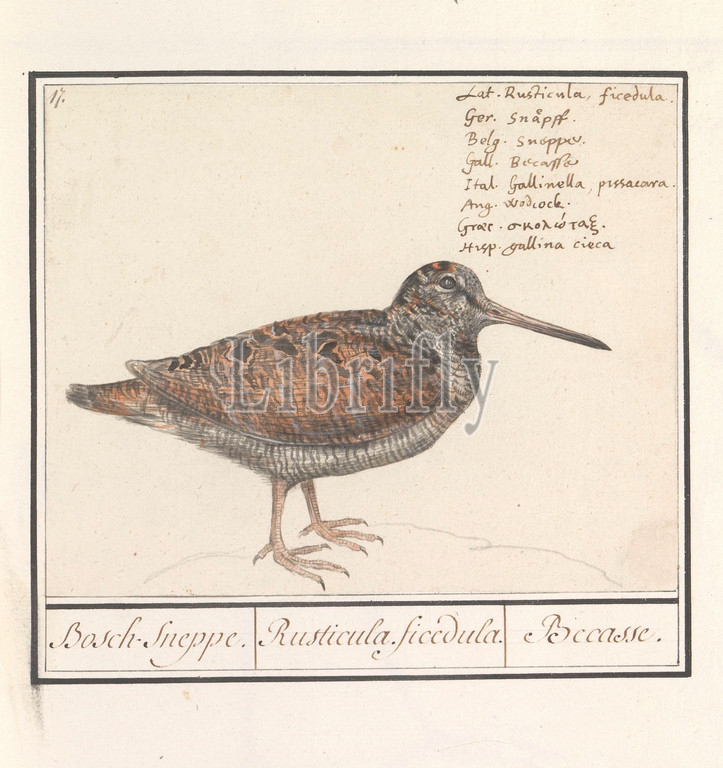 17.
Lat. Rusticula, ficedula.
Ger. Snåpff.
Belg. Sneppe.
Gall. Becasse
Ital. Gallinella, pissacara.
Ang. wodcock.
Græc. σκολώταξ.
Hisp. gallina cieca
Librifly
Bosch-Sneppe. Rusticula. ficedula. Becasse.